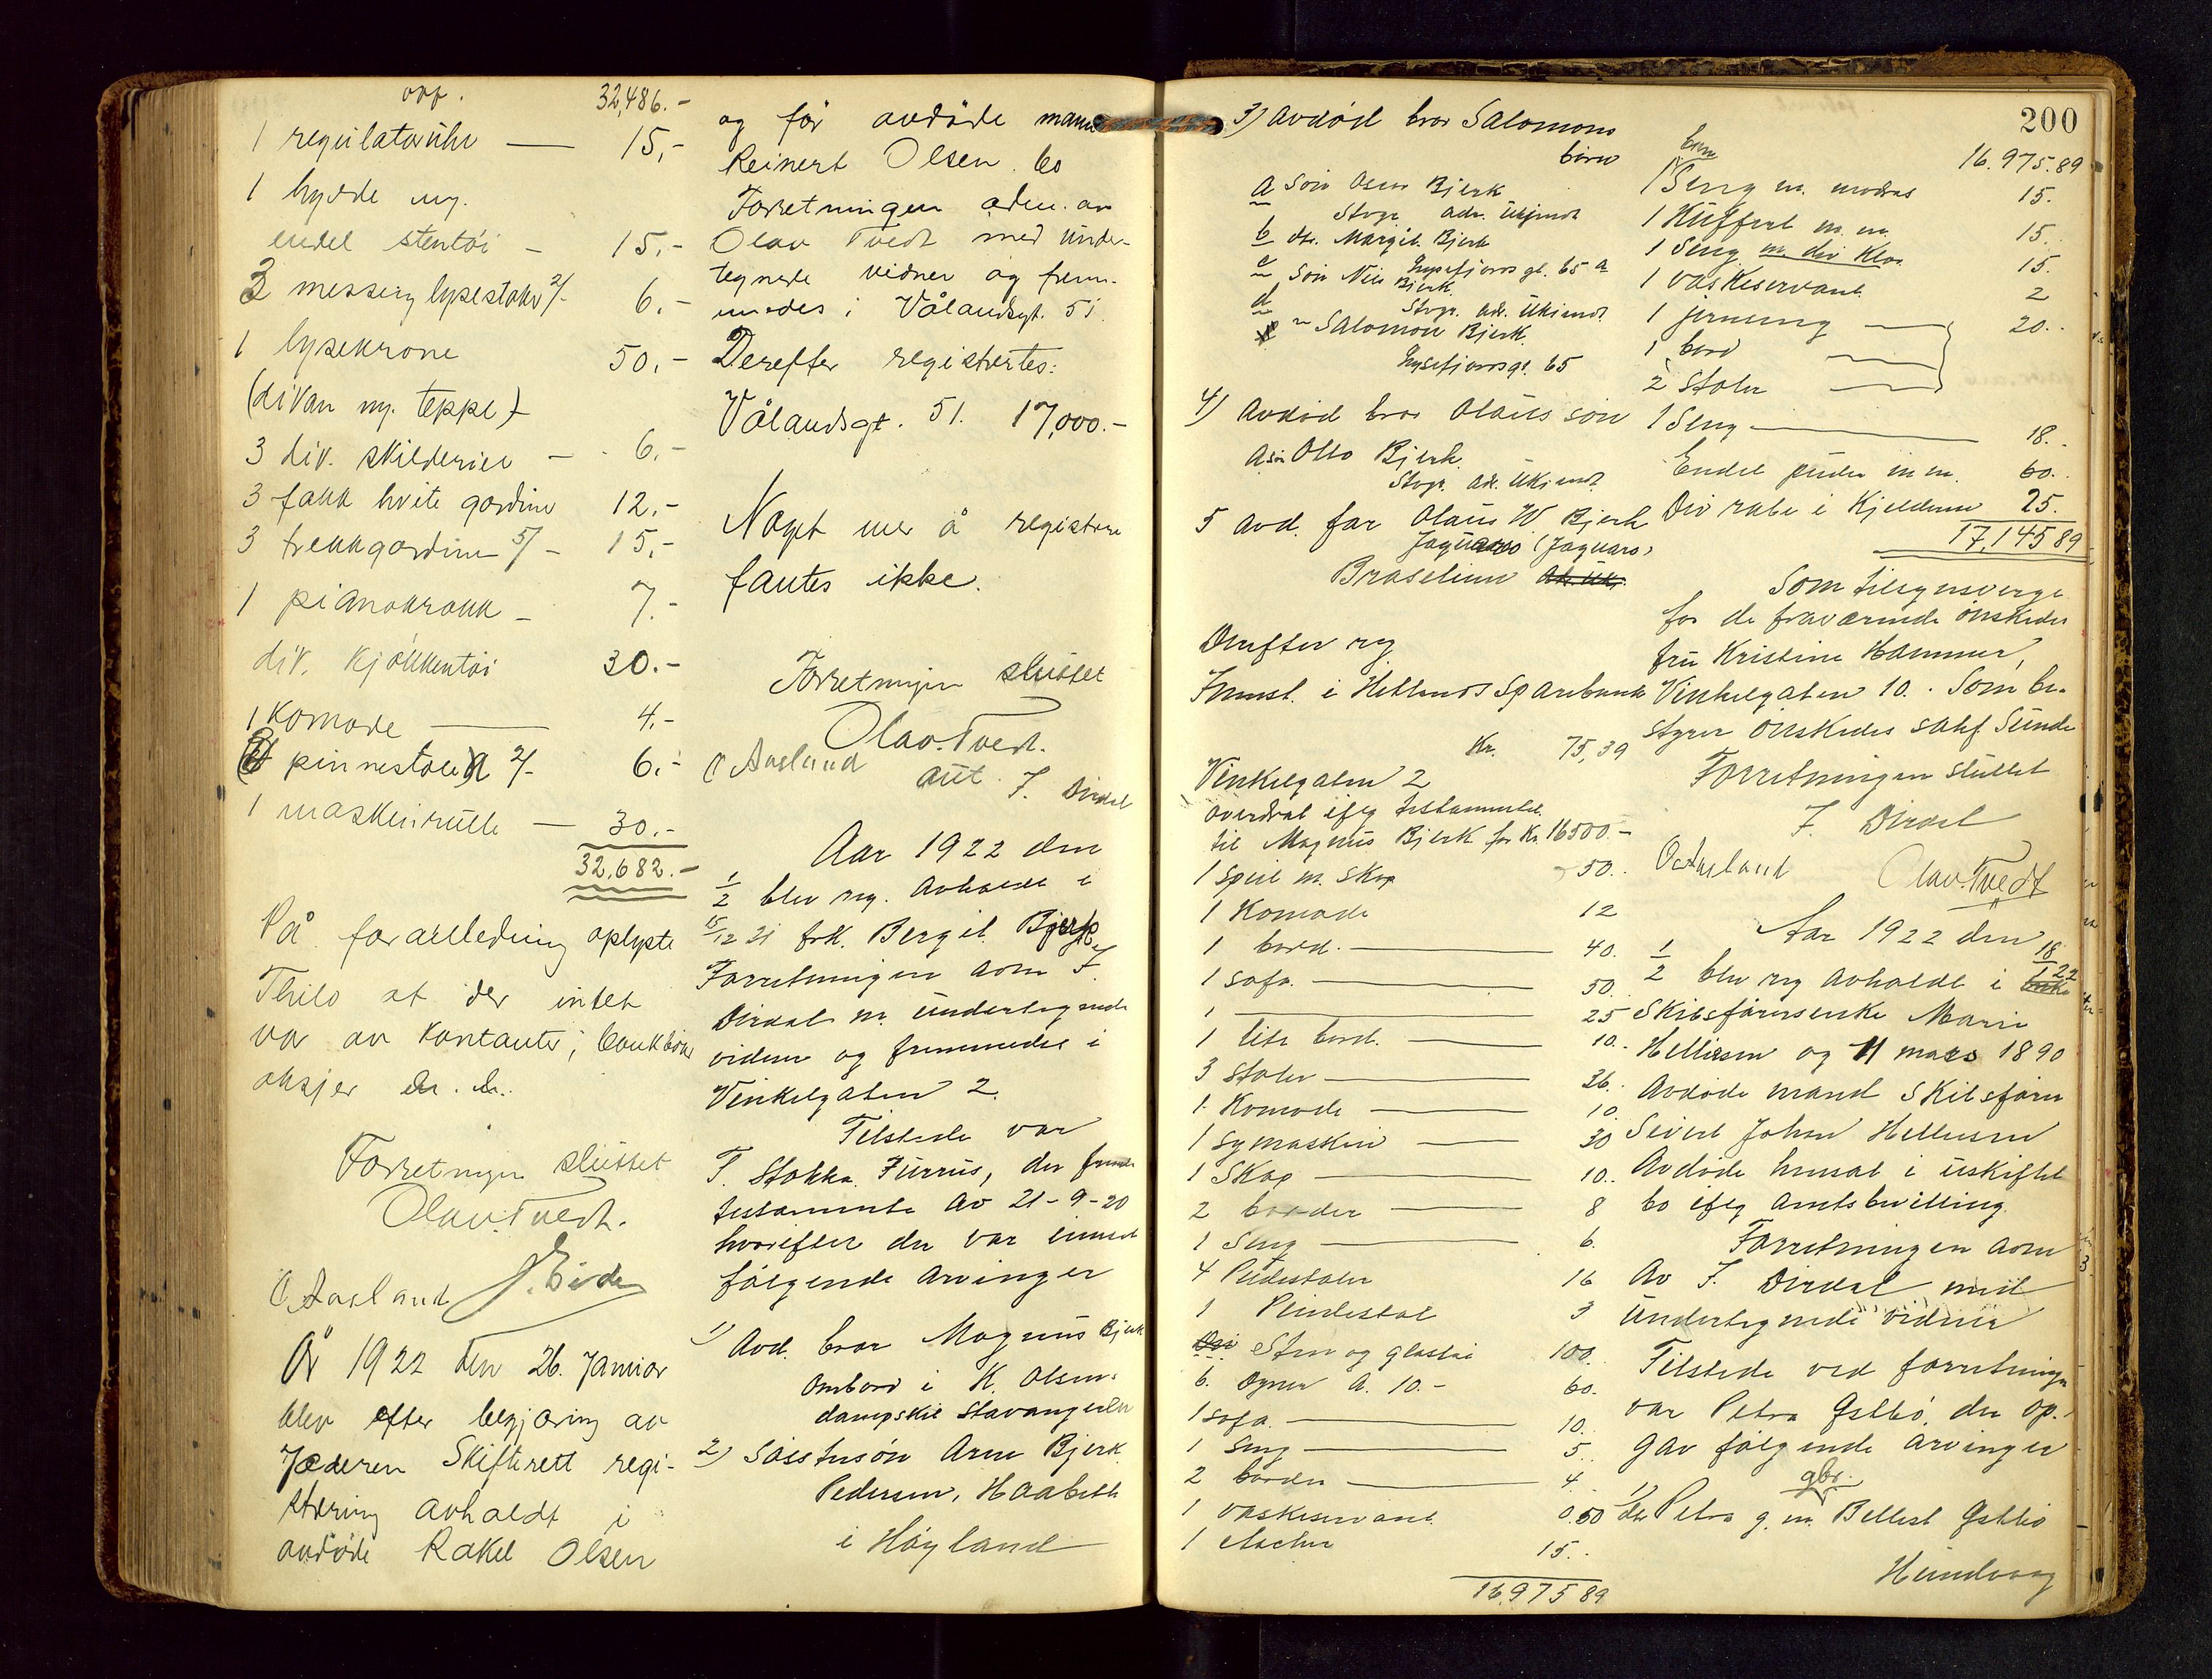 ovf. 32,486.-
1 regulatorühr — 15,-
1 hydde m.
endel stentöi - 15,-
3 messing lysestaker 2/- 6,-
1 lysekrone 50,-
(divan m. teppe)
3 div. skilderier - 6,-
3 fakk hvite gardiner 12,-
3 trekkgardiner 5/- - 15,-
1 pianokrakk - 7.-
div. kjökkentöi 30.-
1 Komode — 4.-
pinnestoler 2/- 6.-
1 maskinrulle — 30.-
32.682.-
På foranledning oplyste
Thilo at der intet
var av kontanter, bankböker
aksjer m. m.
Forretningen sluttet
Olav Tvedt.
O Aasland J. Eide
År 1922 den 26. Januar
blev efter begjæring av
Jæderen Skifterett regi-
strering avholdt i
avdöde Rakel Olsen
og för avdöde mann
Reinert Olsen bo
Forretningen adm. av
Olav Tvedt med under-
tegnede vidner og frem-
mødes i Vålandsgt. 51.
Derefter registrertes:
Vålandsgt. 51. 17,000.-
Noget mer å registrere
fantes ikke.
Forretningen sluttet
Olav Tvedt.
O Aasland aut. F. Dirdal
Aar 1922 den
1/2 blev reg. avholdt i
15/12 21 frk. Bergit Bjerk
Forretningen adm F.
Dirdal m. undertegnede
vidner og fremmødes i
Vinkelgaten 2.
Tilstede var
T. Stokka Furrus, der
testamente av 21-9-20
hvorefter der var
følgende arvinger
1) Avd. bror Magnus Bjerk
ombord i K. Olsens
dampskib Stavangeren
2) Søsters søn Arne Bjerk
Pedersen, Haabeth
i Høyland
200
3) Avdød bror Salomons
børn
a Søn Oscar Bjerk
Stvgr adr. Ukjendt
b dtr. Margit Bjerk
Lysefjordsgt. 65 a
c Søn Nils Bjerk
Stvgr. adr. Ukjendt
d " Salomon Bjerk
Lysefjordsgt. 65
4) Avdød bror Olaus søn
a søn Otto Bjerk
Stvgr. adr. Ukjendt
5 Avd. far Olaus W Bjerk
(Jaguaro)
Braselien
Derefter reg
Innest. i Hetlands Sparebank
Kr. 75,39
Vinkelgaten 2
overdrat iflg testamentet
til Magnus Bjerk for Kr 16500.-
1 Speil m. Skap 50.
1 Komode 12
1 bord. — 40.
1 sofa. — 50.
1 — 25
1 lite bord. — 10.
3 stoler — 36.
1 Komode — 10.
1 symaskin — 30
1 Skap — 10.
2 border — 8
1 Seng — 6.
4 Pidestaler 16
1 Pindestol 3
Sten og glastøi 100.
6. Dyner a. 10.- 60.
1 sofa. — 10.
1 Seng — 5.
2 border — 4.
1 vaskeservant 0.50
1 15.
16.975 89
16.975.89
1 Seng m. madras 15.
1 Kuffert m. m. 15.
1 Seng m. div Klær 15.
1 vaskeservant 2
1 jernseng — 20.
1 bord —
2 Stoler —
1 Seng — 18.
Endel puder m m. 60.
Div rabe i Kjelderen 25.
17.145 89
Som tilsynsverge
for de fraværende ønskedes
fru Kristine Hammer,
Vinkelgaten 10. Som be-
styrer ønskedes sakf Sunde
Forretningen sluttet
F. Dirdal
O Aasland Olav Tvedt
Aar 1922 den
1/2 blev reg avholdt i 18/1 22
Skibsførerenke Marie
Helliesen og 11 mars 1890
Avdøde mand Skibsfører
Sivert Johan Helliesen
Avdøde hensat i uskiftet
bo iflg amtsbevilling.
Forretningen adm
av F. Dirdal med
undertegnede vidner
Tilstede ved forretningen
var Petra Østbø, der op-
gav følgende arvinger
1) dtr Petra g. m. gbr. Østbø
Hundvaag